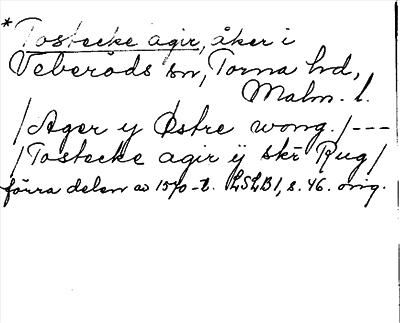 * Tostecke agir, åker i
Veberöds sn, Torna hd,
Malm. l.
/Ager y Østre wong./---
/Tostecke agir ÿ skr Rug/
förra delen av 1570-t. LSLB1, s. 46. orig.